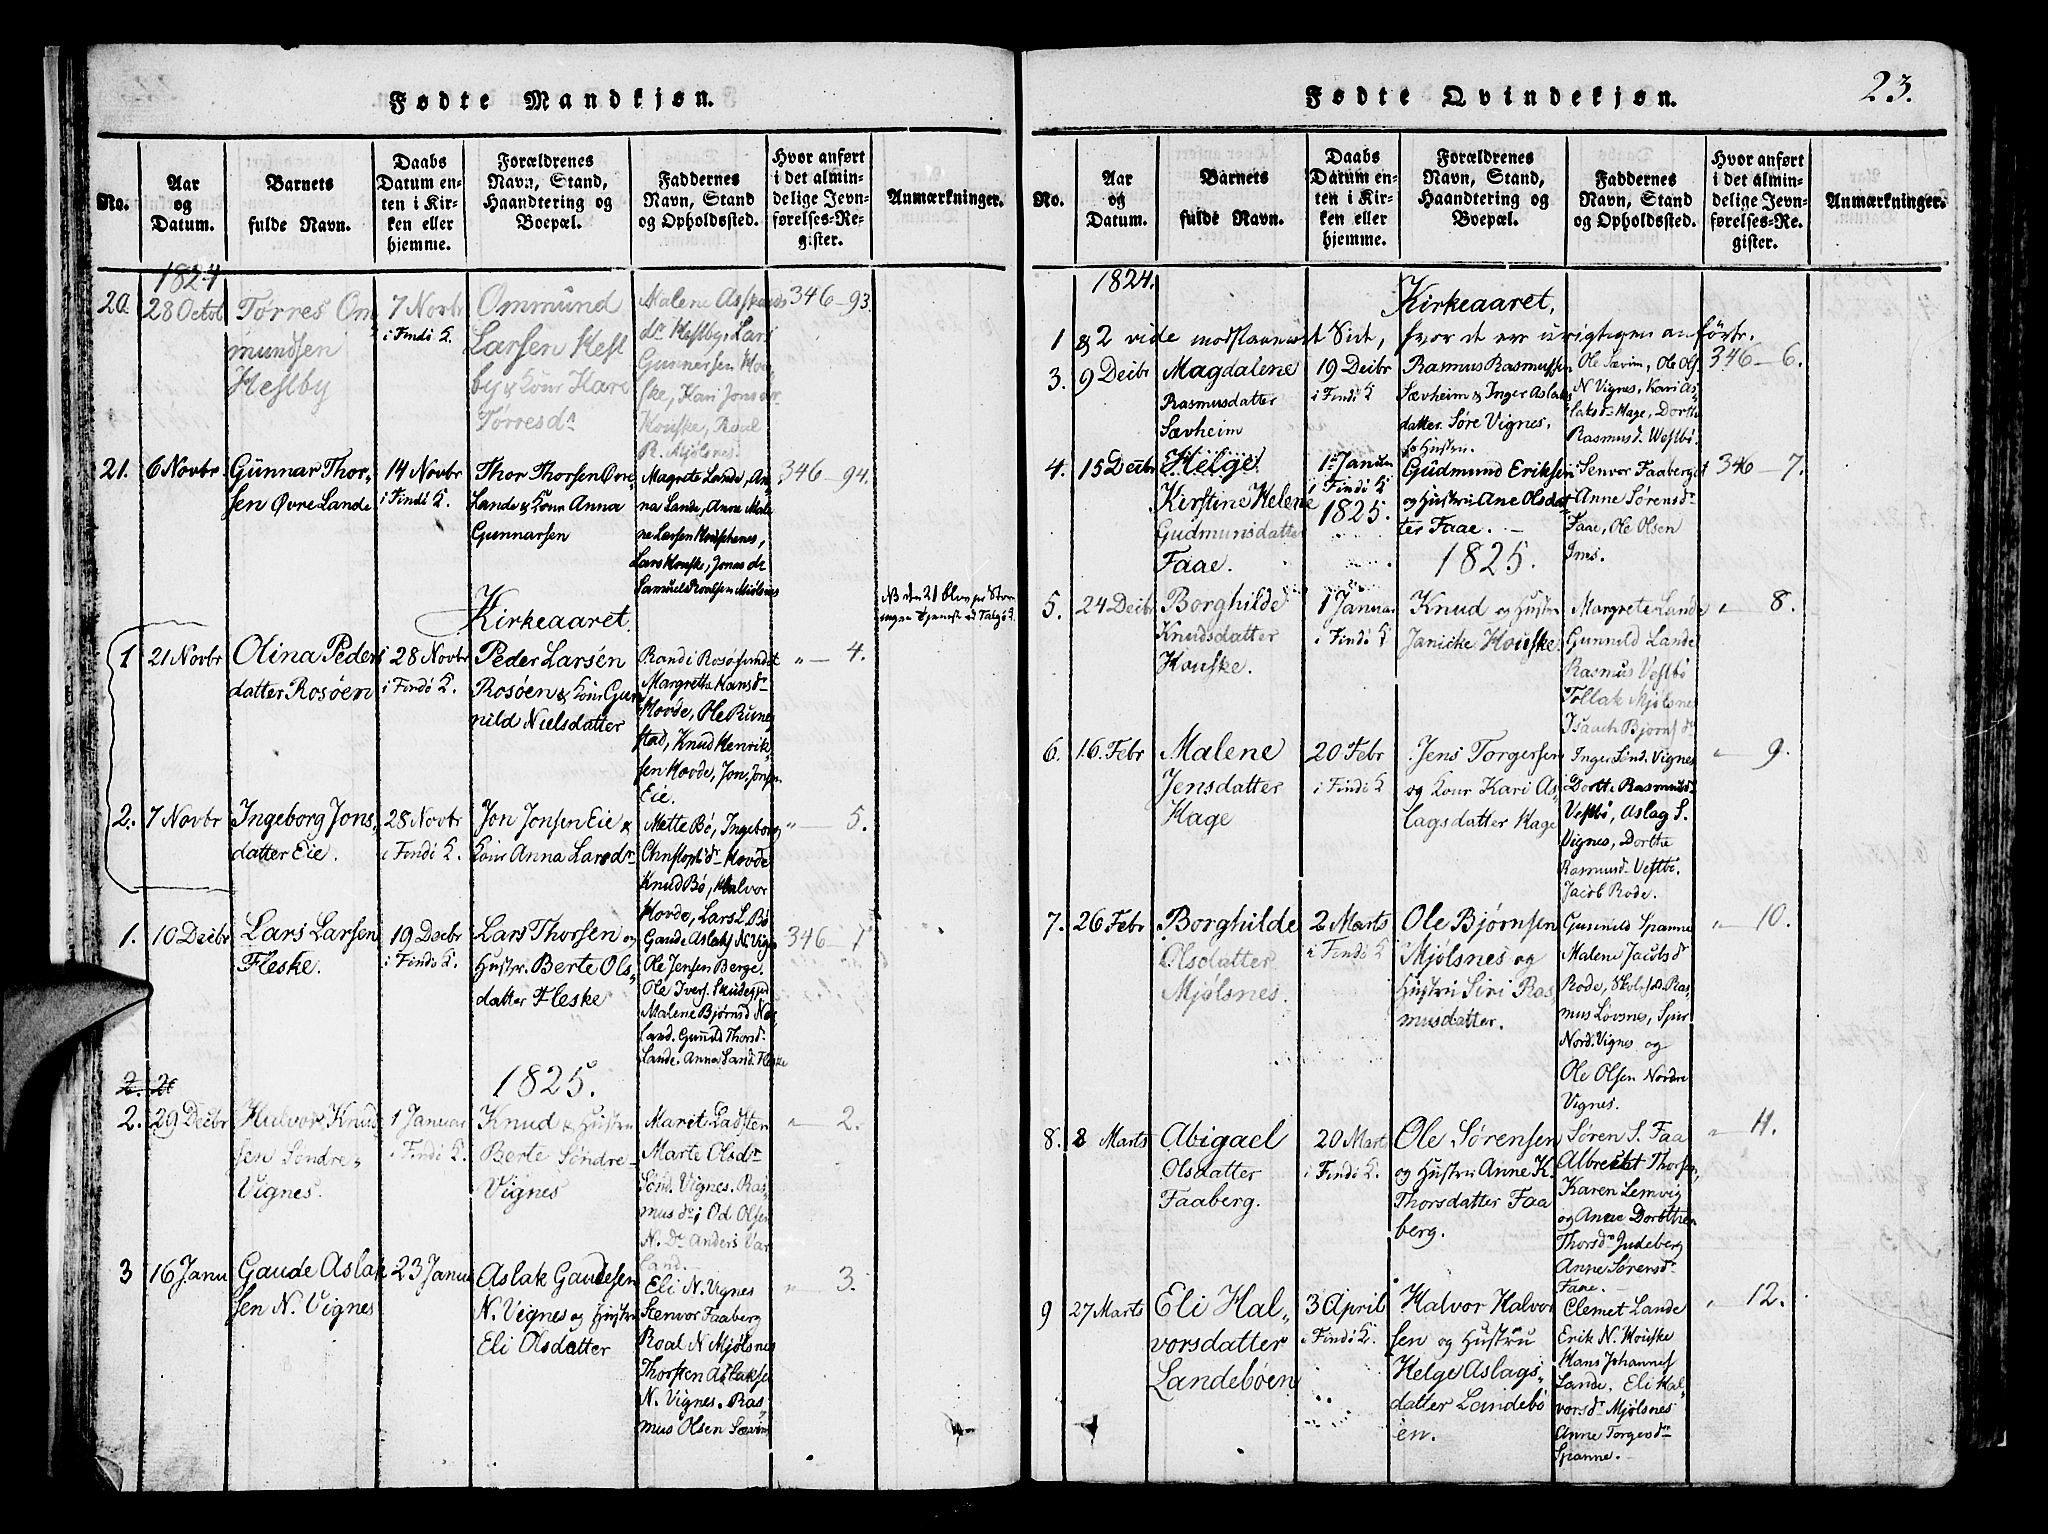 Fødte Mandkjøn.
No.
Aar
og
Datum.
Barnets
fulde Navn.
Daabs
Datum en-
ten i Kir-
ken eller
hjemme.
Forældrenes
Navn, Stand,
Haandtering og
Boepæl.
Faddernes
Navn, Stand
og Opholdssted.
Hvor anført
i det almin-
delige Jevn-
førelses-Re-
gister.
Anmærkninger.
1824
20.
28 Octob
Tørres Om
mundsen
Hesby
7 Novbr
i Findö K.
Ommund
Larsen Hesl
by & Kone Kare
Tørresdr
Malene
dr Heslby, Lars
Gunnersen Hou
ske, Kari Jonsdr
Houske, Roal
R. Mjølsnes.
346 - 93.
21.
6 Novbr
Gunnar Thor-
sen Øvre Lande
14 Novbr
i Findö K.
Thor Thorsen Øvre
Lande & Kone Anna
Gunnarsen
Magrete Lande, An
na Lande, Anne Male
ne Larsen
Lars Houske, Jonas
Samuel Roalsen Mjølsnes
346 - 94.
Kirkeaaret.
NB den 21 blev
1
21 Novbr
Olina Peders
datter Rosöen
28 Novbr
i Findö K.
Peder Larsen
Rosöen & Kone Gun
nild Nielsdatter
Randi Rosö
Margretha Hansdr
Hovde, Ole Runne
stad, Knud Henrik
sen Hovde, Jon Jonsen
Eie.
" - 4.
2.
7 Novbr
Ingeborg Jons,
datter Eie.
28 Novbr
i Findö K.
Jon Jonsen Eie &
Kone Anna Larsdr
Mette Bö, Ingeborg
Christophdr Hovde
Knud Bö, Halvor
Hovde, Lars L. Bö
" - 5.
1.
10 Decbr
Lars Larsen
Fleske.
19 Decbr
i Findö K.
Lars Thorsen og
Hustr. Berte Ols,
datter Fleske
Gaude Aslaks N. Vign
Ole Jensen Berge.
Ole Ivers.
Malene Bjørnsd
land. Gunild Thorsd
Lande. Anna Land. Fleske
346 - 1
1825.
2.
29 Decbr
Halvor Knud
sen Søndre
Vignes.
1 Januar
i Findö K.
Knud & Hustru
Berte Søndre
Vignes
Marit Ladsten
Marte Olsdr
Sönd. Vignes. Ras,
mus dr, Od Olsen
N. Dr Anders Var
land.
" - 2.
3
16 Janu
Gaude Aslak
sen N. Vignes
23 Janu
Aslak Gaudesen
N. Vignes og Hustru
Eli Olsdatter
Eli N. Vignes
Stenvor Faaberg
Roal N Mjølsnes
Thorsten Aslaksen
N. Vignes. Ras,
mus Olsen Sævhm
" - 3.
Fødte Qvindekjøn.
23.
No.
Aar
og
Datum.
Barnets
fulde Navn.
Daabs
Datum en-
ten i Kir-
ken eller
hjemme.
Forældrenes
Navn, Stand,
Haandtering og
Boepæl.
Faddernes
Navn, Stand
og Opholdssted.
Hvor anført
i det almin-
delige Jevn-
førelses-Re-
gister.
Anmærkninger.
1824.
Kirkeaaret.
1 & 2 vide modstaaende Side, hvor de ere urigtigen anførte.
3.
9 Decbr
Magdalene
Rasmusdatter
Sævheim
19 Decbr
i Findö K
Rasmus Rasmussen
Sævheim & Inger Aslaks
datter Søre Vignes,
Hustru.
Ole Sævim, Ole Ols
N Vignes, Kari As,
laksdr Hage, Dorthe
Rasmusd. Westbö.
346 - 6.
4.
15 Decbr
Helge
Kirstine Helene
Gudmunsdatter
Faae.
1 Januar
i Findö K
1825.
Gudmund Eriksen
og Hustru Ane Olsdat
ter Faae.
Senvor Faaberget
Anne Sørensdr
Faae, Ole Olsen
Ims.
346 - 7.
1825.
5.
24 Decbr
Borghilde
Knudsdatter
Houske.
1 Januar
i Findö K
Knud og Hustru
Janicke Houske.
Margrete Lande
Gunnild Lande
Rasmus Vestbö
Tollak Mjølsnes
Isaach Bjørnsdr
" - 8.
6.
16. Febr
Malene
Jensdatter
Hage
20 Febr
i Findö K
Jens Torgersen
og Kone Kari As,
lagsdatter Hage
Inger Sönd. Vignes
Dorth. Rasmusd
Vestbö, Aslag S.
Vignes, Dorthe
Rasmusd. Vestbö.
Jacob Rode.
" - 9.
7.
26 Febr
Borghilde
Olsdatter
Mjølsnes.
2 Marts
i Findö K.
Ole Bjørnsen
Mjølsnes og
Hustru Siri Ras,
musdatter.
Gunnild Spanne
Malene Jacobsd
Rode, Ras,
mus Lovsnes,
Nord. Vignes og
Ole Olsen Nordre
Vignes.
" - 10.
8.
8 Marts
Abigael
Olsdatter
Faaberg.
20 Mart
i Findö K.
Ole Sørensen
og Hustru Anne K.
Thorsdatter Faa
berg.
Søren S. Faa
Albrecht Thorsen,
Karen Lemvig
og Anne Dorothea
Thorsdr Judeberg
Anne Sørensdr
Faae.
" - 11.
9
27 Marts
Eli Hal,
vorsdatter
Landebøen
3 April
i Findö K.
Halvor Halvor
sen og Hustru
Helge Aslags,
datter Landebö
en.
Clemet Lande
Erik N. Houske
Hans Johannes
Lande. Eli Hal,
vorsdr Mjølsnes
Anne Torgersdr
Spanne.
" - 12.